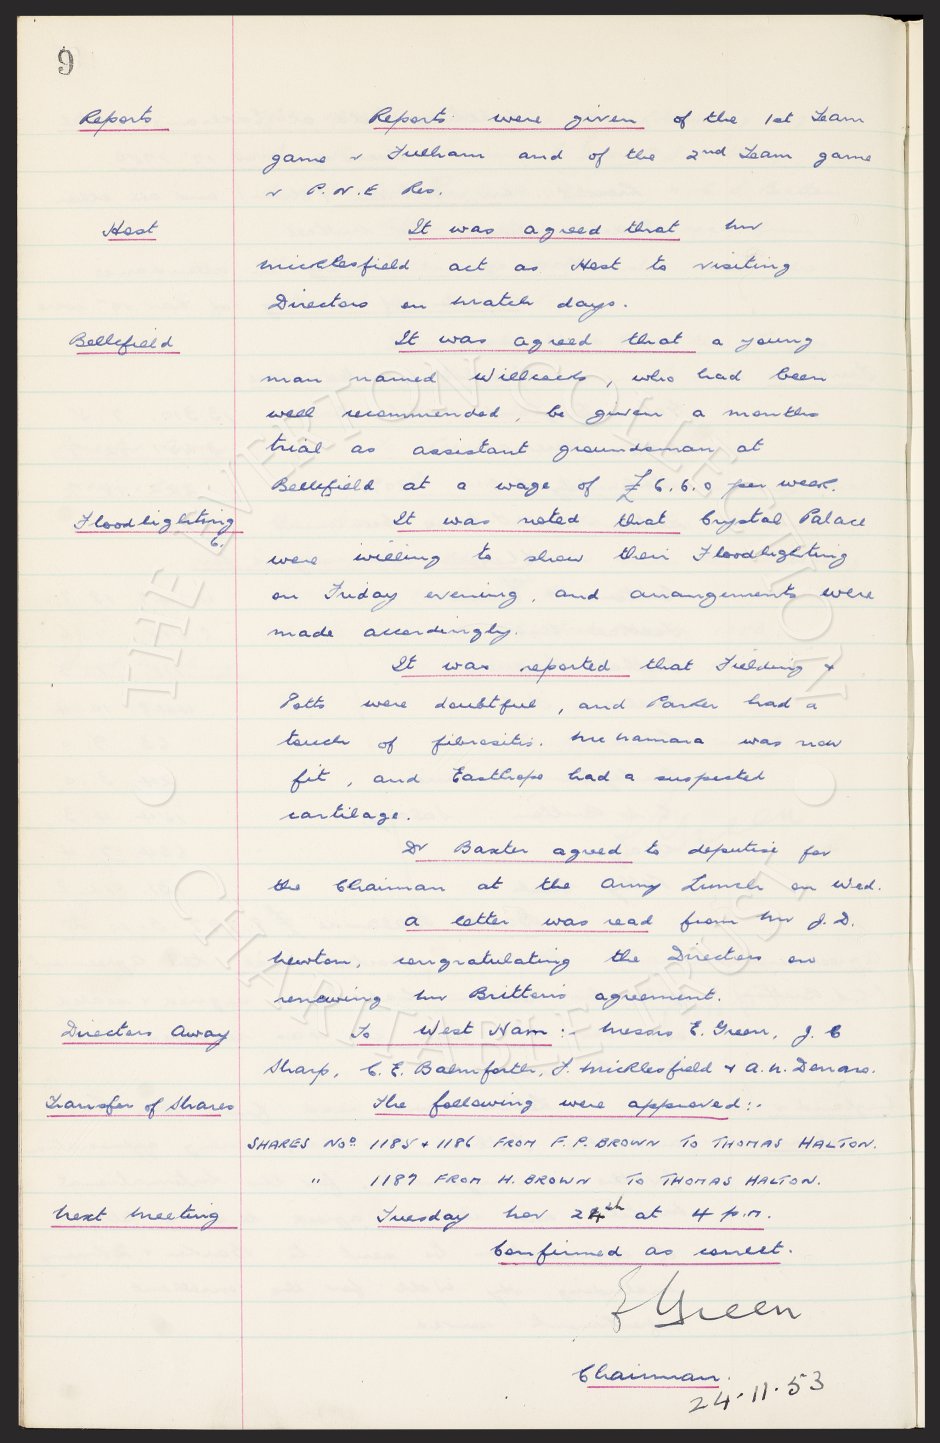 9
Reports Reports were given of the 1st Team
game v Fulham and of the 2nd Team game
v P.N.E Res.
Host It was agreed that Mr
Micklesfield act as Host to visiting
Directors on match days.
Bellefield It was agreed that a young
man named Willcocks, who had been
well recommended, be given a months
trial as assistant groundsman at
Bellefield at a wage of £6.6.0 per week.
Floodlighting It was noted that Crystal Palace
were willing to show their Floodlighting
on Friday evening, and arrangements were
made accordingly.
It was reported that Fielding &
Potts were doubtful, and Parker had a
touch of fibrositis. McNamara was now
fit, and Easthope had a suspected
cartilage.
Dr Baxter agreed to deputise for
the Chairman at the Army Lunch on Wed.
A letter was read from Mr J.D.
Newton, congratulating the Directors on
renewing Mr Britton's agreement.
Directors Away To West Ham :- Messrs E. Green, J. C
Sharp, C. E. Balmforth, F. Micklesfield & A.N. Denaro.
Transfer of Shares The following were approved:-
SHARES Nos 1185 & 1186 FROM F. P. BROWN TO THOMAS HALTON.
" 1187 FROM H. BROWN TO THOMAS HALTON.
Next Meeting Tuesday Nov 24th at 4 p.m.
Confirmed as correct.
E Green
Chairman.
24.11.53
THE EVERTON COLLECTION
CHARITABLE TRUST